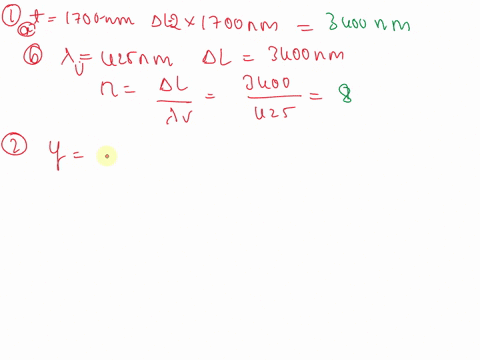 ① t = 1700nm ΔL2 × 1700 nm = 3400 nm
ⓐ
ⓑ λv = 425nm ΔL = 3400nm
n = ΔL / λv = 3400 / 425 = 8
② y =